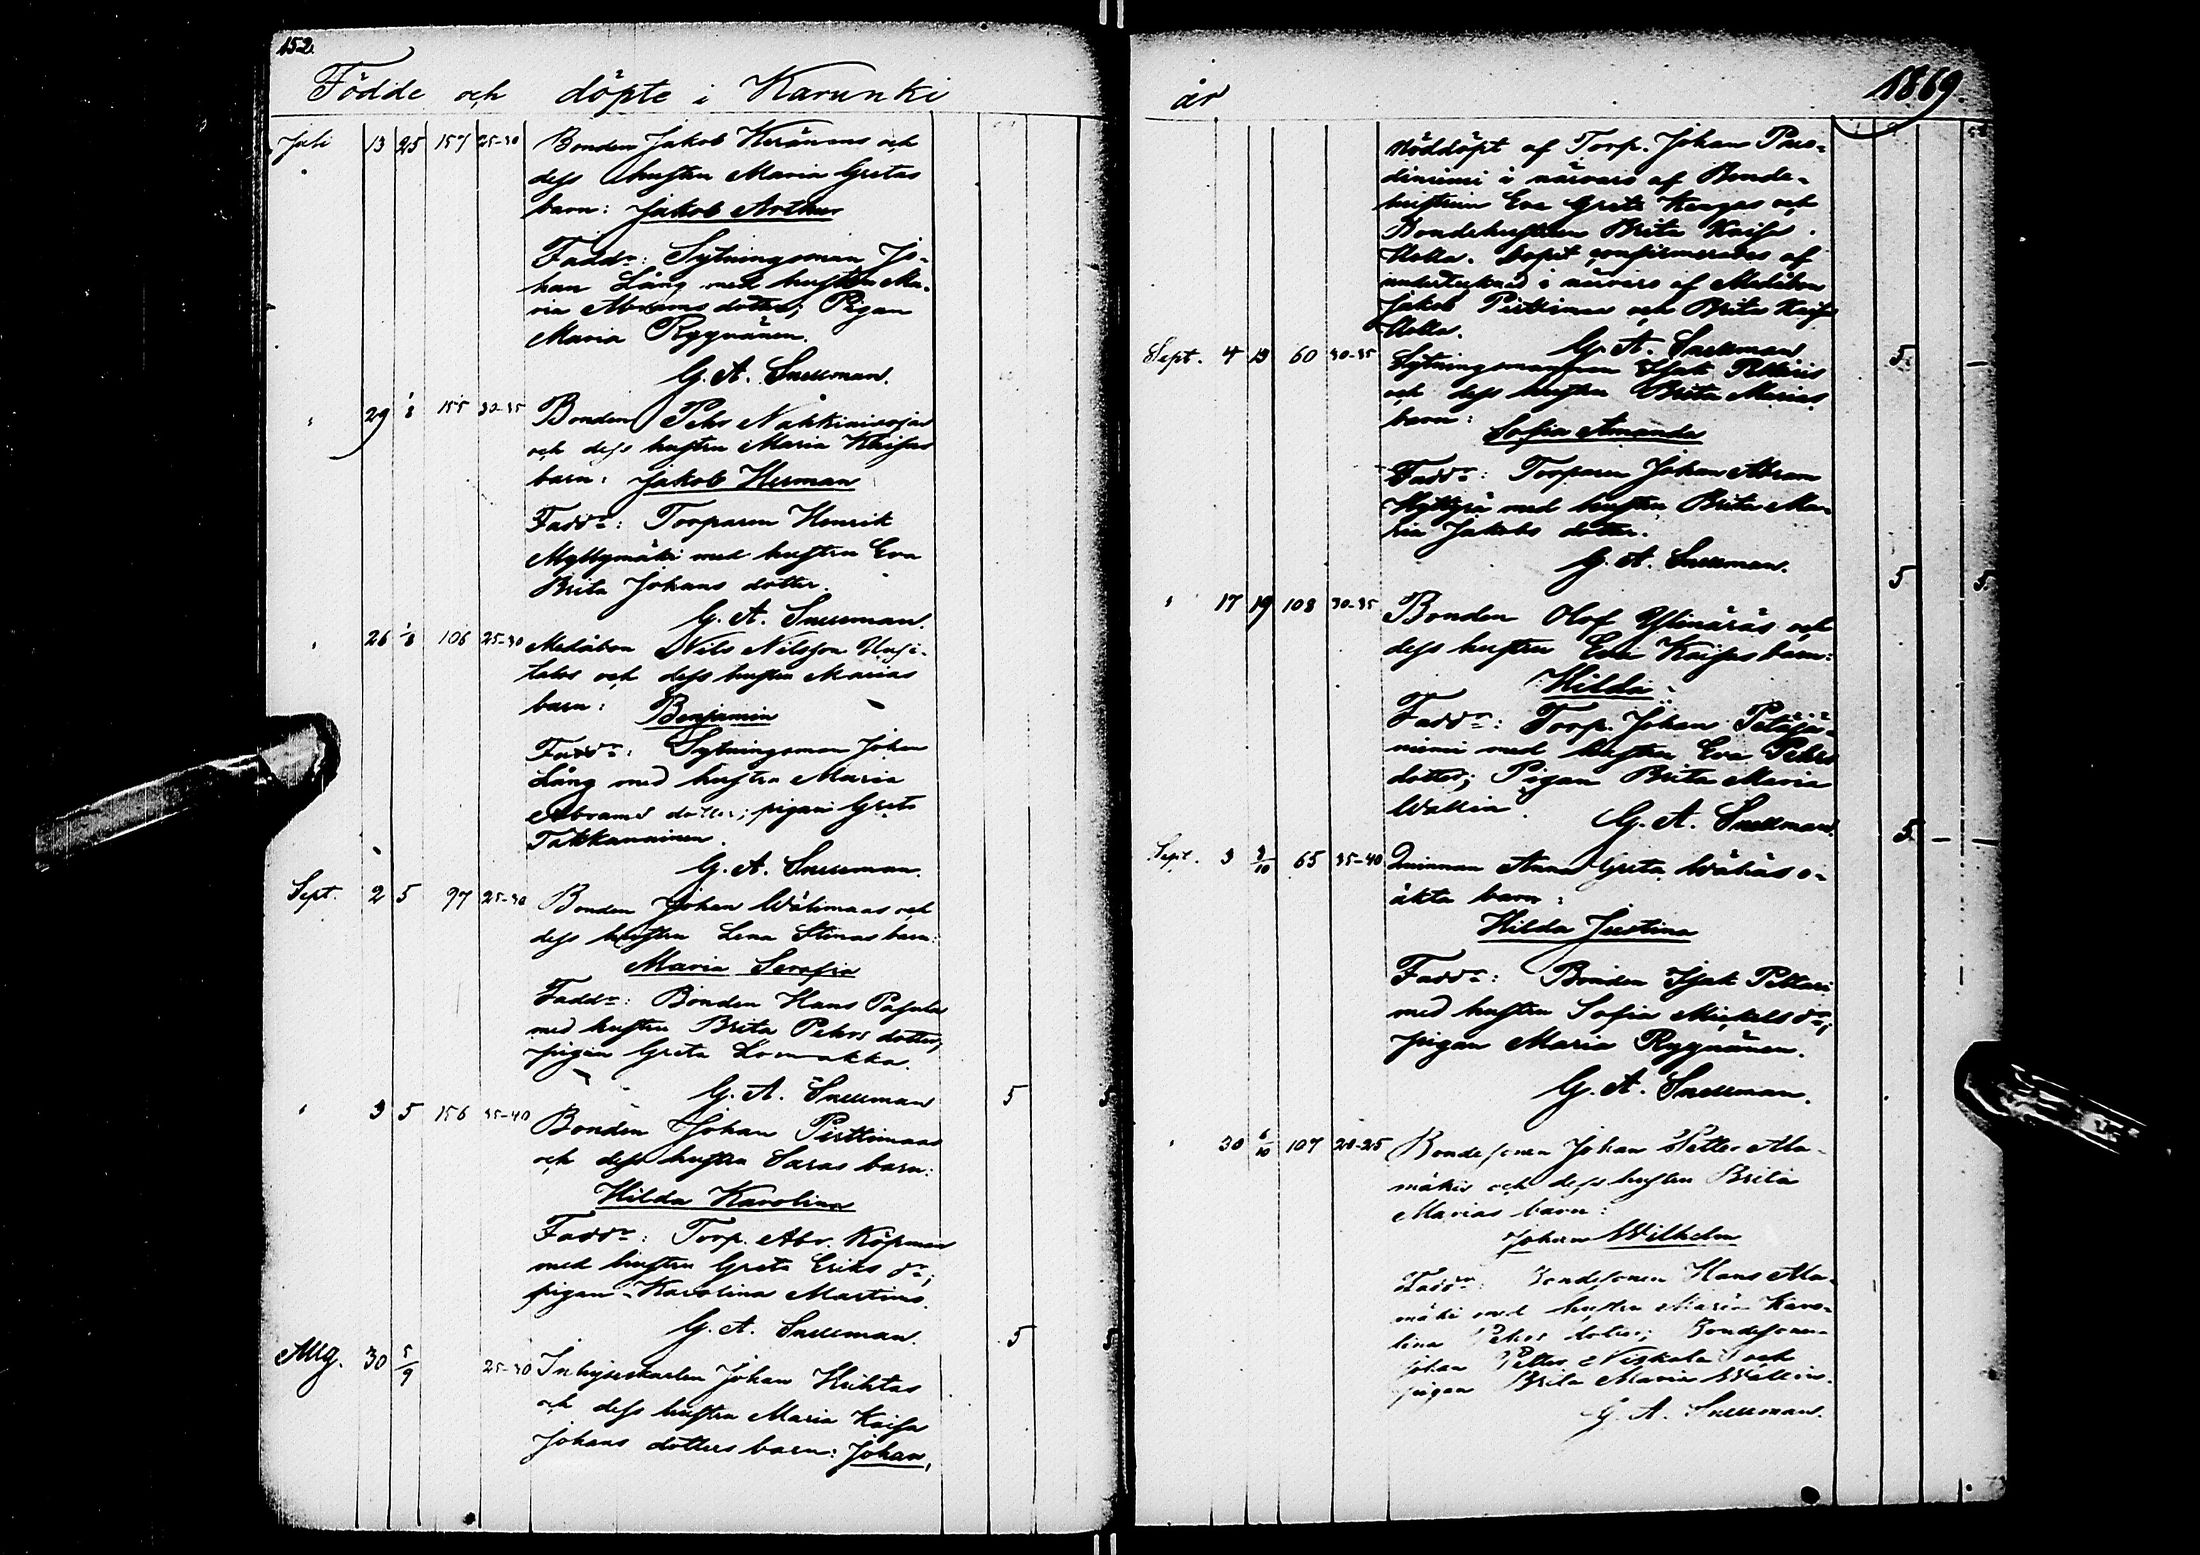 152.
Födde och döpte i Karunki
Juli 13 25 157 25-30 Bonden Jakob Keränens och
dess hustru Maria Gretas
barn: Jakob Arthur
Faddr: Sytningsman Jo-
han Lång med hustru Ma-
ria Abrams dotter; Pigan
Maria Ryynänen.
G. A. Snellman.
" 29 1/8 155 30-35 Bonden Pehr
och dess hustru Maria Kaisas
barn: Jakob Herman
Faddr: Torparen Henrik
Myllymäki med hustru Eva
Brita Johans dotter.
G. A. Snellman.
" 26 1/8 106 25-30 Mediåbon Nils Nilsson
och dess hustru Marias
barn: Benjamin
Faddr: Sytningsman Johan
Lång med hustru Maria
Abrams dotter; pigan Greta
Takkanainen.
G. A. Snellman.
Sept. 2 5 97 25-30 Bonden Johan Wälimaas och
dess hustru Lena Stinas barn:
Maria Serafia
Faddr: Bonden Hans
med hustru Brita Pehrs dotter,
pigan Greta
G. A. Snellman 5 5
" 3 5 156 35-40 Bonden Johan Pirttimaas
och dess hustru Saras barn:
Hilda Karolina
Faddr: Torp. Abr. Köpman
med hustru Greta Eriks dr;
pigan Karolina Martins.
G. A. Snellman. 5 5
Aug. 30 5/9 25-30 Inhyseskarlen Johan Huhtas
och dess hustru Maria Kaisa
Johans dotters barn: Johan,
år 1869.
nöddöpt af Torp. Johans
i närvaro af Bonde-
hustrun Eva Greta Kangas och
Bondehustrun Brita Kaisa
Dopet confirmerades af
undertecknad i närvaro af Mediåbon
Jakob Pirttimaa och Brita Kaisa
G. A. Snellman 5. —
Sept. 4 13 60 30-35 Sytningsmannen Isak
och dess hustru Brita Marias
barn:
Sofia Amanda
Faddr: Torparen Johan Abram
med hustru Brita Ma-
ria Jakobs dotter.
G. A. Snellman. 5 5.
" 17 19 108 30-35 Bonden Olof Ylinäräs och
dess hustru Eva Kaisas barn:
Hilda
Faddr: Torp. Johan Petäjä-
niemi med hustru Eva Pehrs
dotter; Pigan Brita Maria
Wallin.
G. A. Snellman. 5. — —
Sept. 3 3/10 65 35-40 Qvinnan Anna Greta Wähäs o-
äkta barn:
Hilda Justina
Faddr: Bonden Isak
med hustru Sofia Mickels dr;
pigan Maria Ryynänen.
G. A. Snellman.
" 30 6/10 107 20-25 Bondesonen Johan Petter Ala-
mäkis och dess hustru Brita
Marias barn:
Johan Wilhelm
Faddr: Bondesonen Hans Ala-
mäki med hustru Maria Karo-
lina Pehrs dotter; Bondesonen
Johan Petter Niskala och
pigan Brita Maria Wallin.
G. A. Snellman.